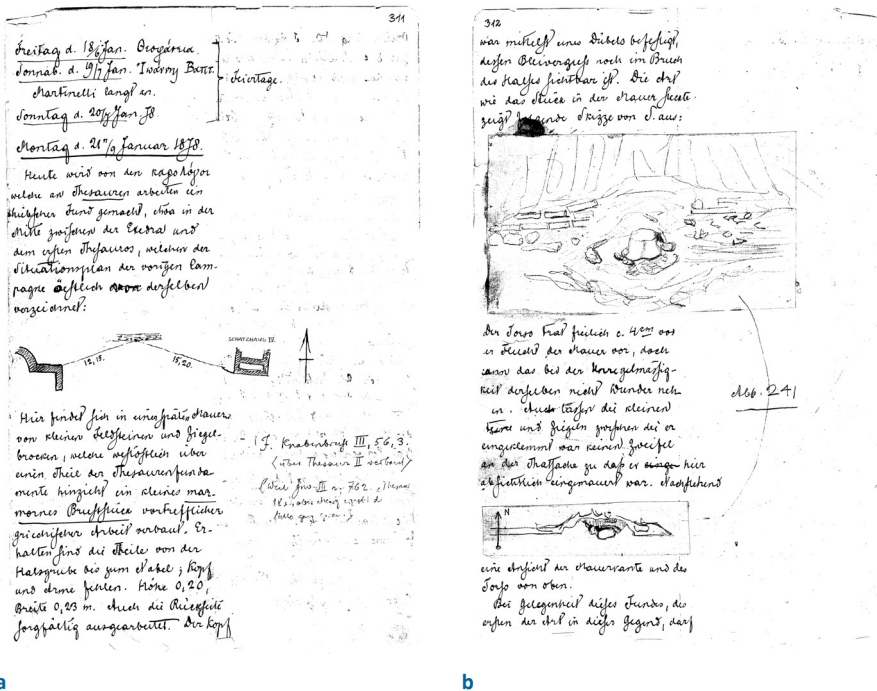 311
Freitag d. 18/6 Jan. Θεοφάνεια.
Sonnab. d. 19/7 Jan. Ἰωάννης Βαπτ.
Martinelli langt an.
Sonntag d. 20/8 Jan. 78.
Feiertage.
Montag d. 21/9 Januar 1878.
Heute wird von den
welche an Thesauren arbeiten ein
hübscher Fund gemacht, etwa in der
Mitte zwischen der Exedra und
dem ersten Thesauros, welchen der
Situationsplan der vorigen Cam-
pagne östlich von derselben
verzeichnet:
SCHATZHAUS IV.
12,15.
15,20.
Hier findet sich in einer späten Mauer
von kleinen Feldsteinen und Ziegel-
brocken, welche westöstlich über
einen Theil der Thesaurenfunda-
mente hinzieht ein kleines mar-
mornes Bruststück vortrefflicher
griechischer Arbeit verbaut. Er-
halten sind die Theile von der
Halsgrube bis zum Nabel; Kopf
und Arme fehlen. Höhe 0,20,
Breite 0,23 m. Auch die Rückseite
sorgfältig ausgearbeitet. Der Kopf
Knabenbrust III, 56, 3.
<über Thesaur II verbaut>
III n. 762.
a
312
war mittelst eines Dübels befestigt,
dessen Bleiverguss noch im Bruch
des Halses sichtbar ist. Die Art
wie das Stück in der Mauer steckte
zeigt folgende Skizze von S. aus:
Der Torso trat freilich c. 4 cm vor
Flucht der Mauer vor, doch
kann das bei der Unregelmässig-
keit derselben nicht Wunder neh-
en. Auch lassen die kleinen
Steine und Ziegeln zwischen die er
eingeklemmt war keinen Zweifel
an der Thatsache zu daß er hier
absichtlich eingemauert war. Nachstehend
Abb. 241
N
eine Ansicht der Mauerkante und des
Torso von oben.
Bei Gelegenheit dieses Fundes, des
ersten der Art in dieser Gegend, darf
b